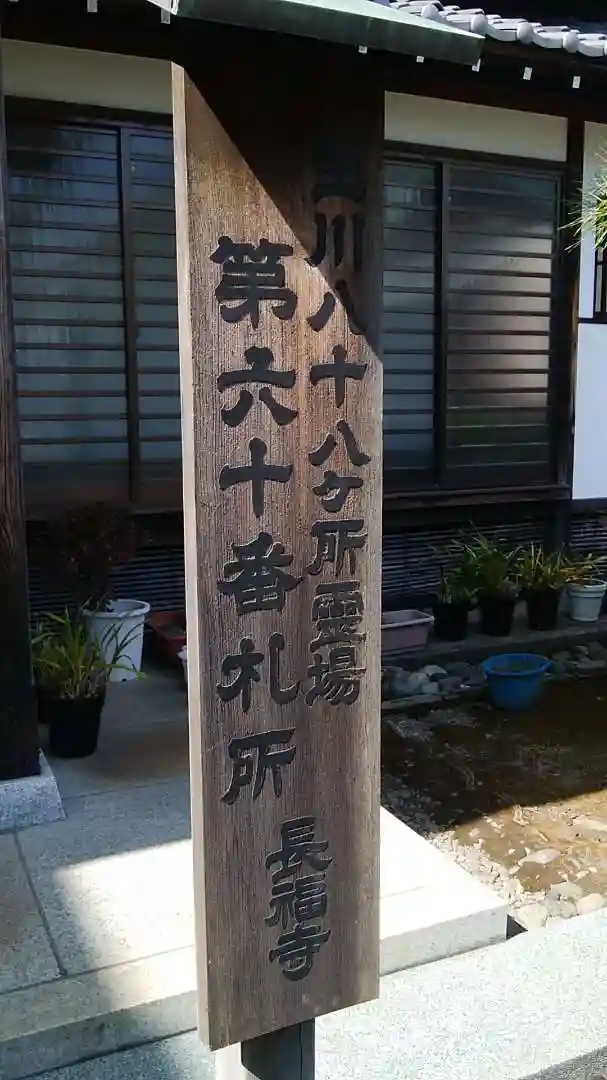 玉川八十八ヶ所霊場
第六十番札所
長福寺